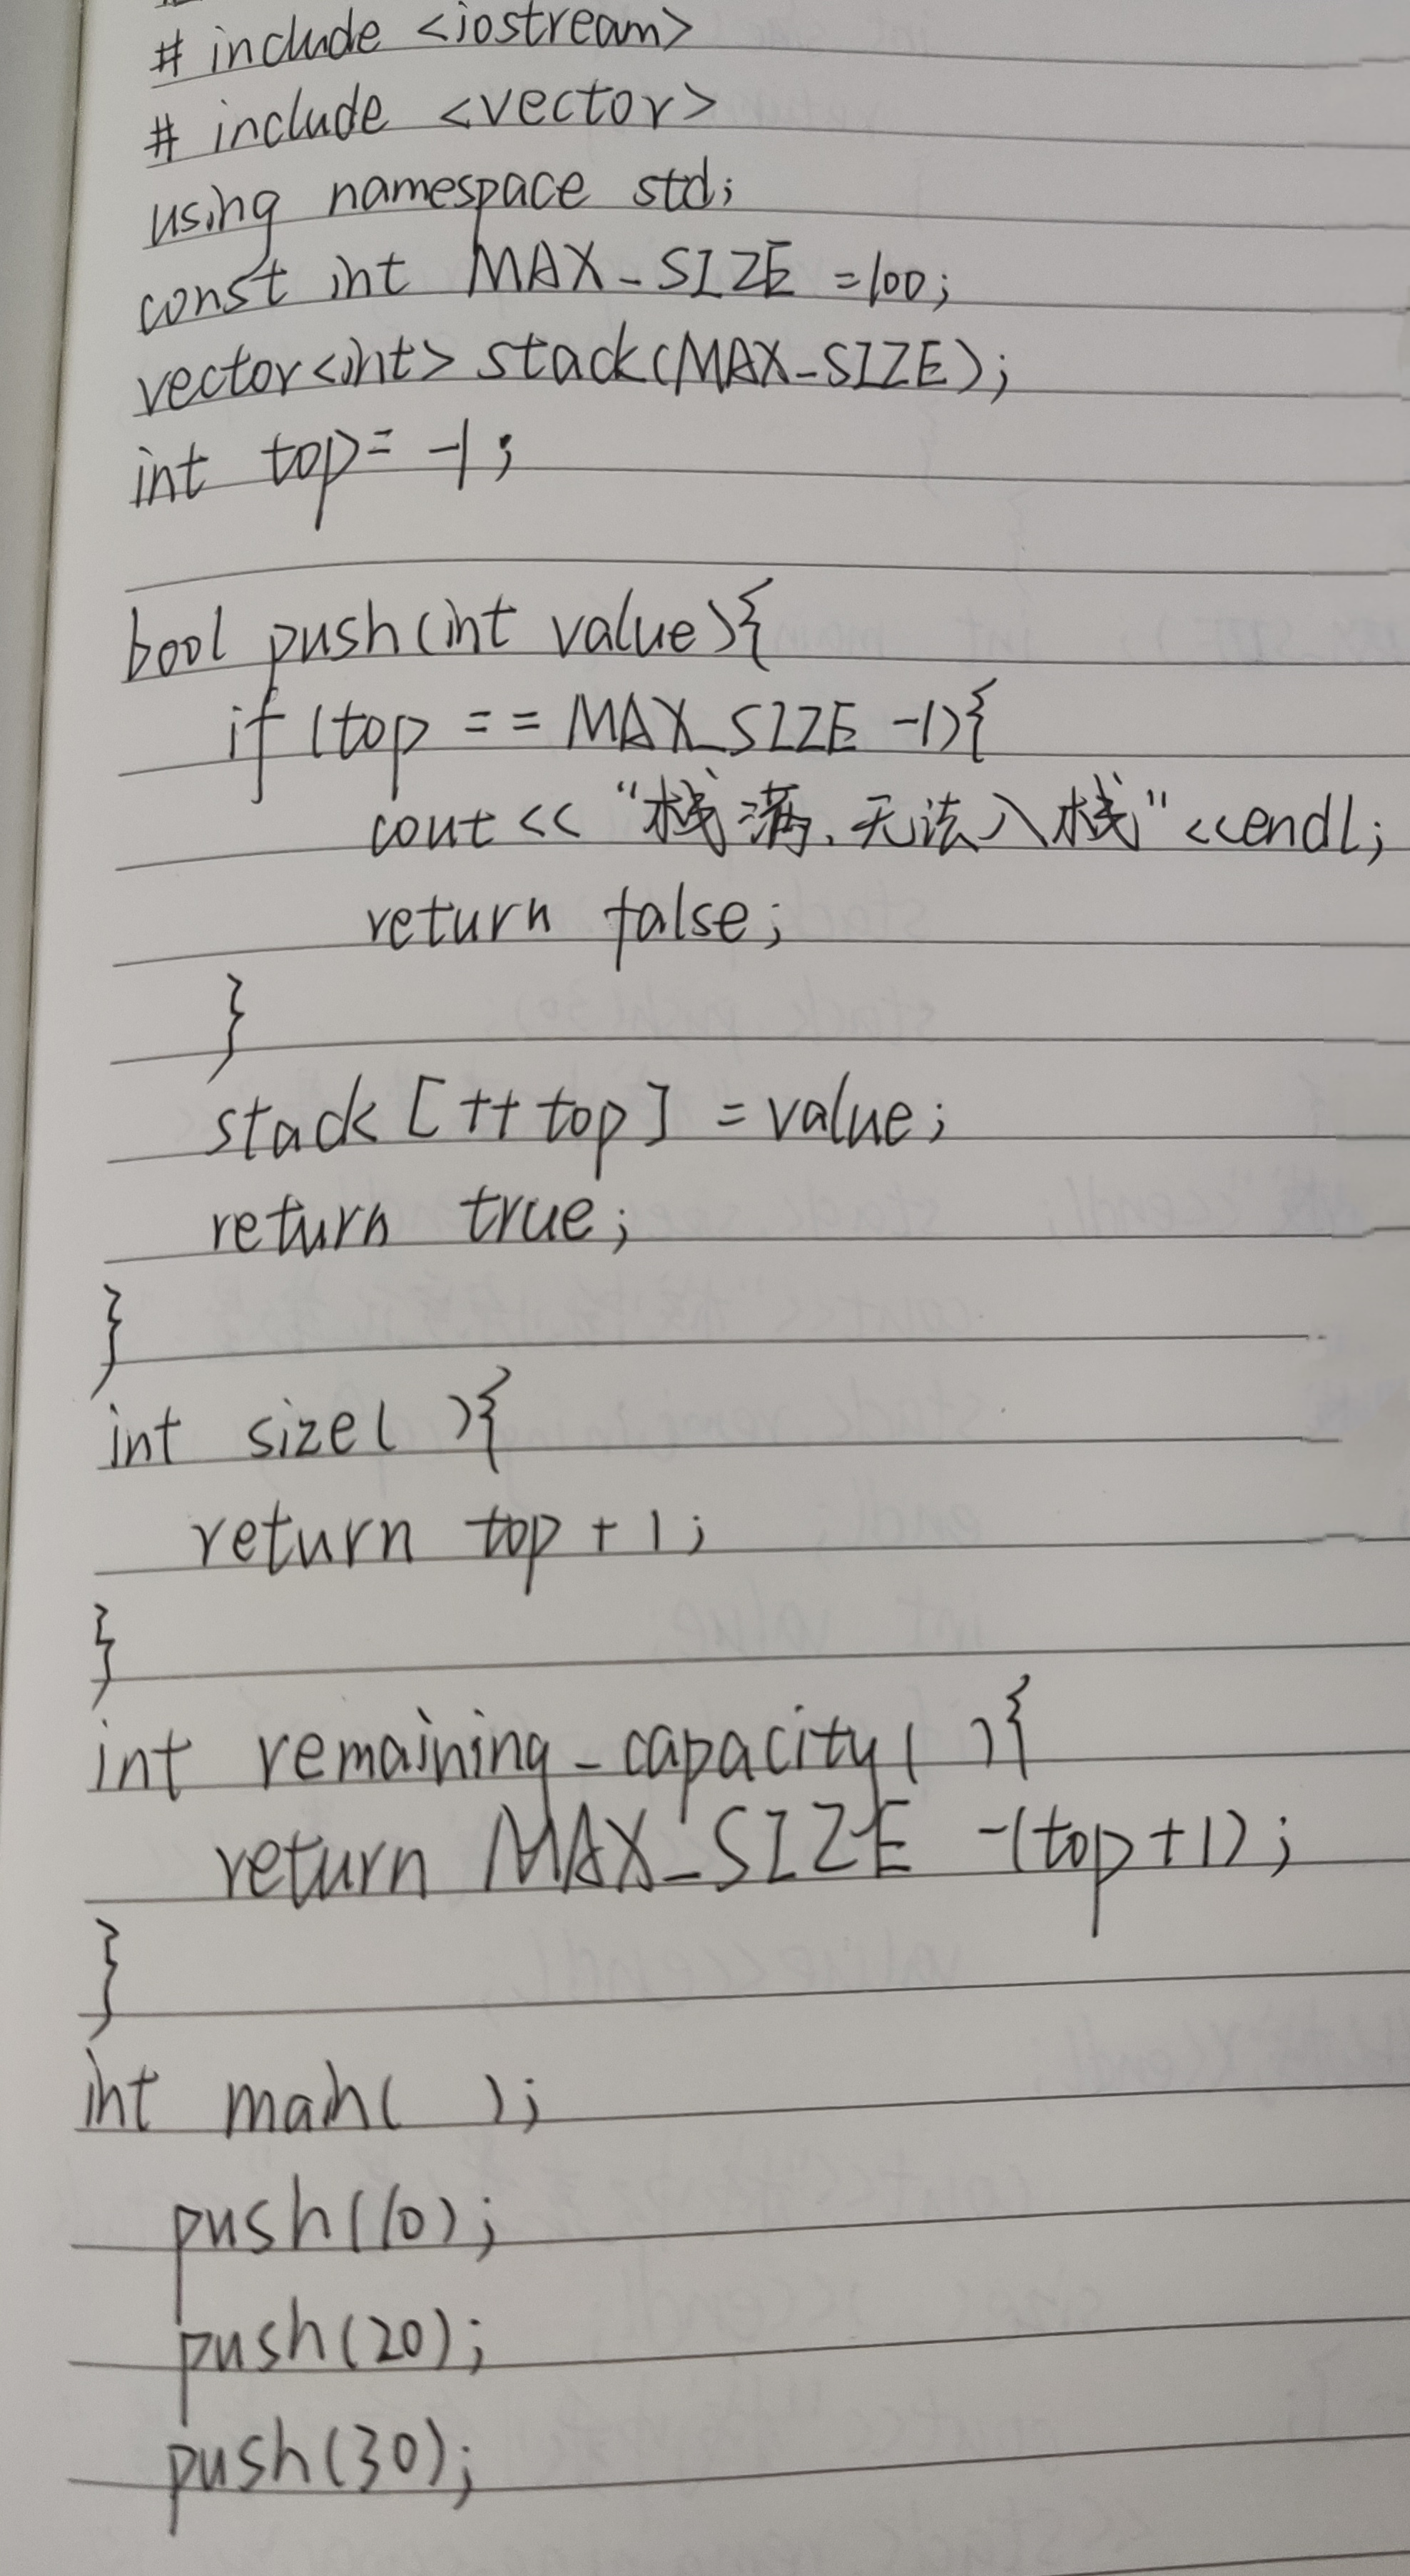 # include <iostream>
# include <vector>
using namespace std;
const int MAX_SIZE =100;
vector<int> stack(MAX_SIZE);
int top= -1;
bool push(int value){
if (top == MAX_SIZE -1){
cout << "栈满、无法入栈" <<endl;
return false;
}
stack [++top] = value;
return true;
}
int size( ){
return top + 1;
}
int remaining_capacity( ){
return MAX_SIZE -(top+1);
}
int main( );
push(10);
push(20);
push(30);